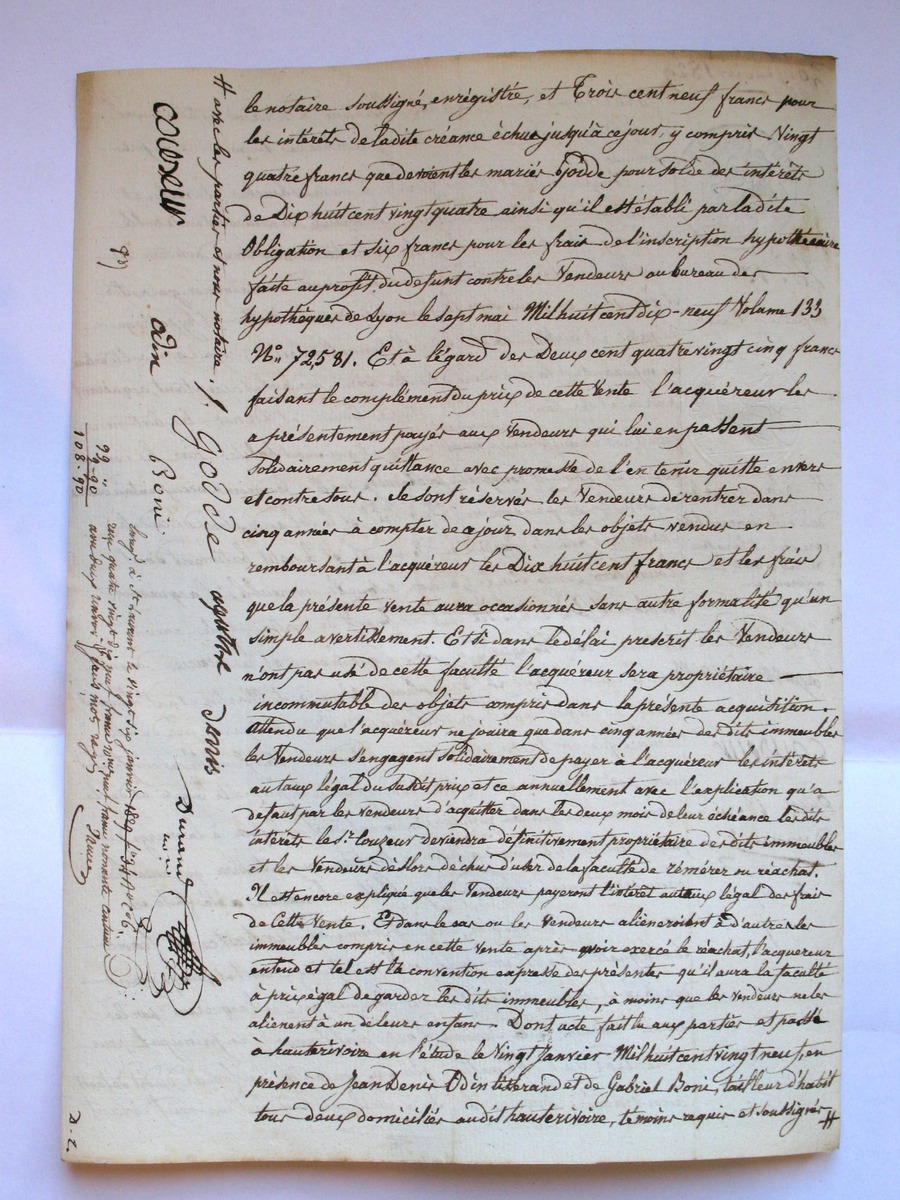 le notaire soussigné, enrégistré, et Trois cent neuf francs pour
les intérèts de ladite créance échus jusqu'à ce jour, y compris Vingt
quatre francs que devoient les mariés Godde pour solde des intérèts
de Dix huit cent vingt quatre ainsi qu'il est établi par ladite
Obligation et six francs pour les frais de l'inscription hypothécaire
faite au profit du défunt contre les Vendeurs au bureau des
hypothèques de Lyon le sept mai Mil huit cent dix-neuf Volume 133
N° 72,581. Et à l'égard des Deux cent quatre vingt cinq francs
faisant le complément du prix de cette Vente l'acquéreur les
a présentement payés aux Vendeurs qui lui en passent
Solidairement quittance avec promesse de l'en tenir quitte envers
et contre tous. Se sont réservés les Vendeurs de rentrer dans
cinq années à compter de ce jour dans les objets vendus en
remboursant à l'acquéreur les Dix huit cent francs et les frais
que la présente vente aura occasionnés sans autre formalité qu'un
simple avertissement. Et si dans le délai prescrit les Vendeurs
n'ont pas usé de cette faculté l'acquéreur sera propriétaire
incommutable des objets compris dans la présente acquisition.
attendu que l'acquéreur ne jouira que dans cinq années des dits immeubles
les Vendeurs s'engagent solidairement de payer à l'acquéreur les intérèts
au taux légal du susdit prix et ce annuellement avec l'explication qu'à
défaut par les vendeurs d'acquitter dans les deux mois de leur échéance les dits
intérèts le Sr. Couzeur deviendra définitivement propriétaire des dits immeubles
et les Vendeurs dès lors déchus d'user de la faculté de réméré ou réachat.
Il est encore expliqué que les Vendeurs payeront l'intérèt au taux légal des frais
de Cette Vente. Et dans le cas ou les Vendeurs aliéneroient à d'autres les
immeubles compris en cette vente après avoir exercé le réachat, l'acquereur
entend et tel est la convention expresse des présentes qu'il aura la faculté
à prix égal de garder les dits immeubles, à moins que les vendeurs ne les
aliènent à un de leurs enfans. Dont acte fait lu aux parties et passé
à hauterivoire en l'étude le Vingt Janvier Mil huit cent vingt neuf, en
présence de Jean Denis Odin tisserand et de Gabriel Boni, tailleur d'habit
tous deux domiciliés audit hauterivoire, témoins requis et soussignés #
# avec les parties et nous notaire ./.
couzeur odin Boni
godde
Durand
Enrgé à St Laurent le vingt six janvier 1829
reçu quatre vingt dix neuf francs
99 "
9-90
108-90